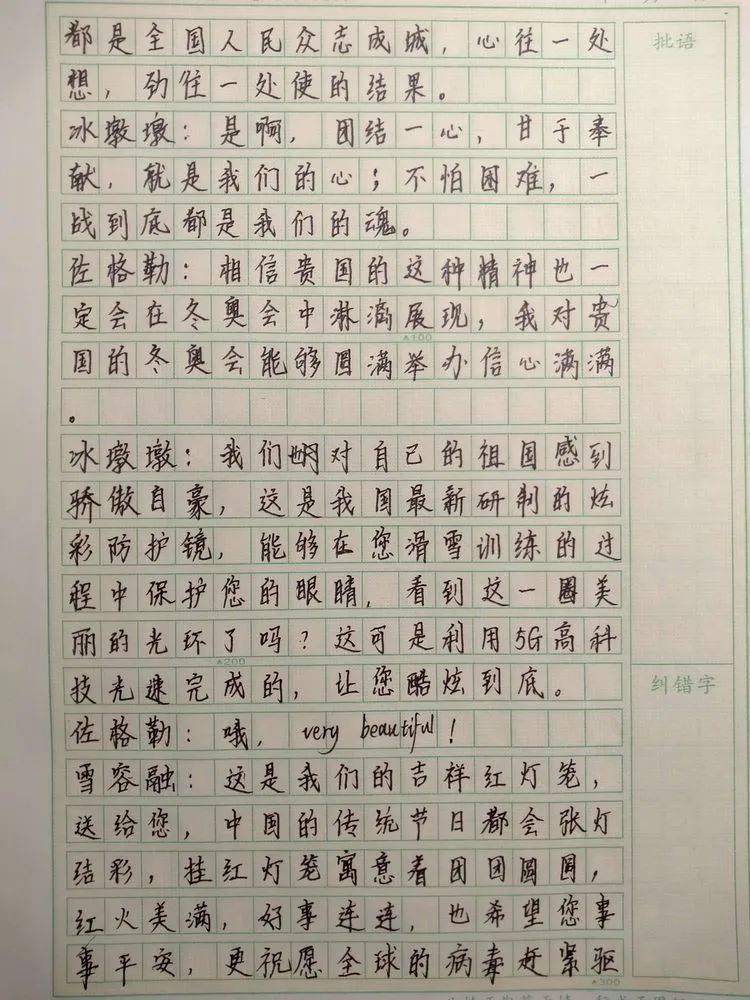 都是全国人民众志成城，心往一处
批语
想，劲往一处使的结果。
冰墩墩：是啊，团结一心，甘于奉
献，就是我们的心；不怕困难，一
战到底都是我们的魂。
佐格勒：相信贵国的这种精神也一
定会在冬奥会中淋漓展现，我对贵
▲100
国的冬奥会能够圆满举办信心满满
。
冰墩墩：我们都对自己的祖国感到
骄傲自豪，这是我国最新研制的炫
彩防护镜，能够在您滑雪训练的过
程中保护您的眼睛，看到这一圈美
丽的光环了吗？这可是利用5G高科
▲200
技光速完成的，让您酷炫到底。
纠错字
佐格勒：哦，very beautiful！
雪容融：这是我们的吉祥红灯笼，
送给您，中国的传统节日都会张灯
结彩，挂红灯笼寓意着团团圆圆，
红火美满，好事连连，也希望您事
事平安，更祝愿全球的病毒赶紧驱
▲300